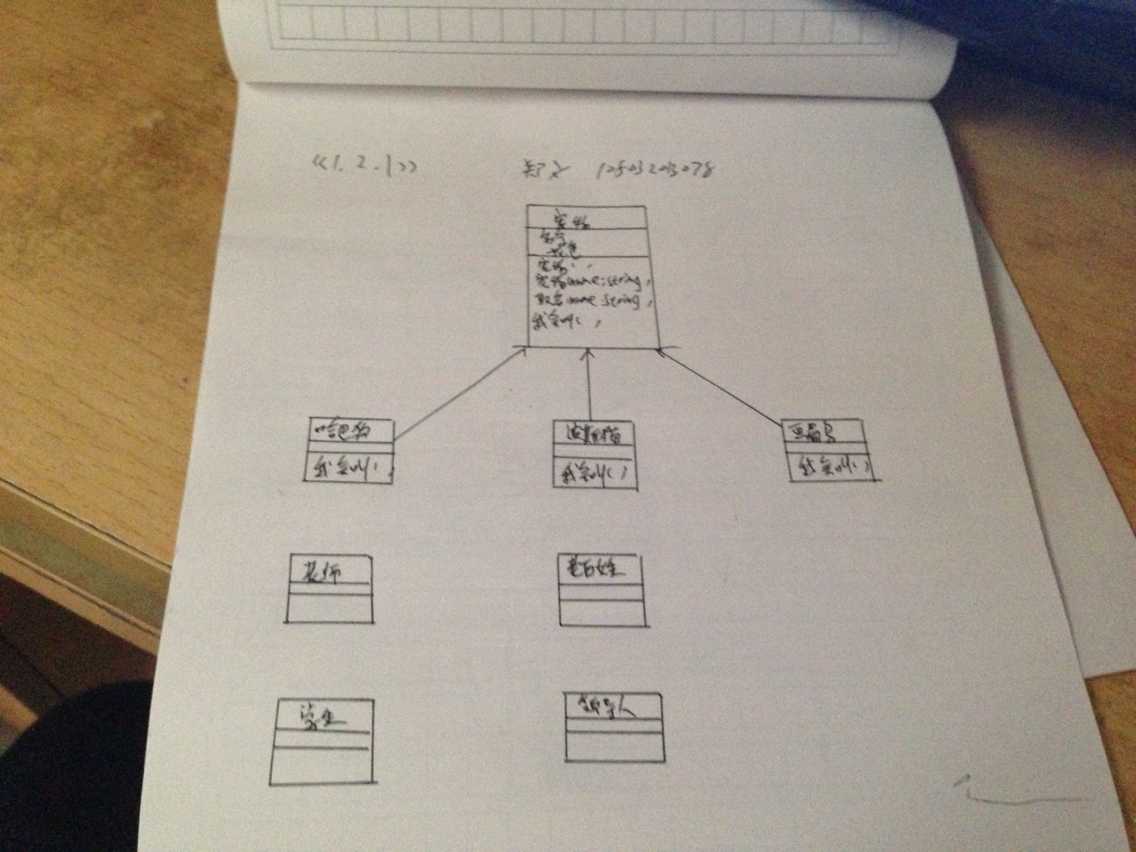 <<1.2.1>> 郑文 10503203078
宠物
名字
花色
宠物( )
宠物name:string)
取名name:string)
我会叫( )
哈巴狗
我会叫( )
波斯猫
我会叫( )
我会叫( )
老师
老百姓
学生
领导人